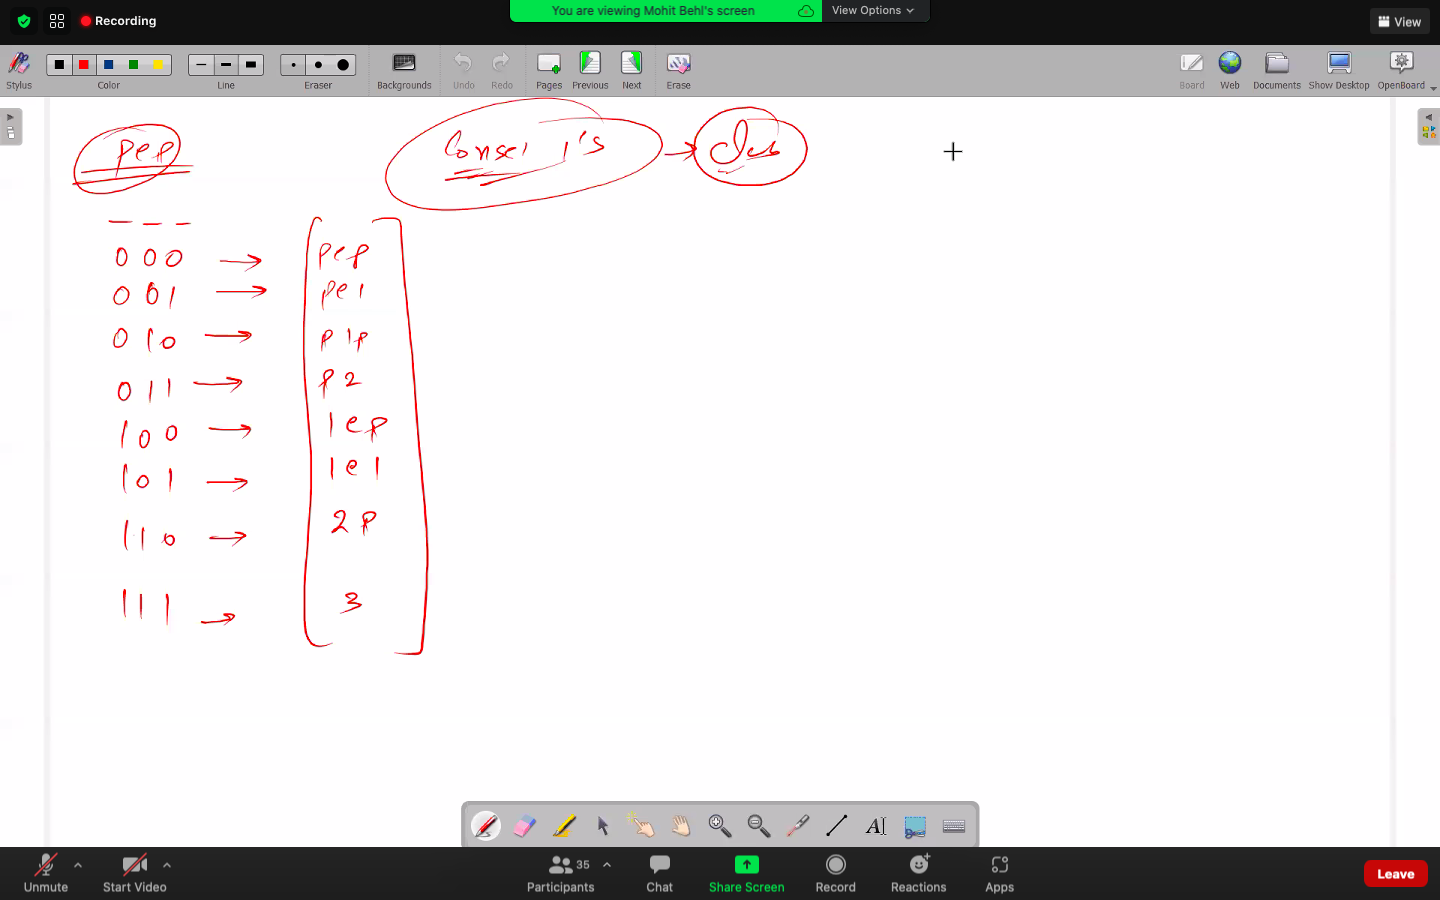 Recording
You are viewing Mohit Behl's screen
View Options
View
Stylus
Color
Line
Eraser
Backgrounds
Undo
Redo
Pages
Previous
Next
Erase
Board
Web
Documents
Show Desktop
OpenBoard
pep
1's
0 0 0 → pep
0 0 1 → pe1
0 1 0 → p1p
0 1 1 → p2
1 0 0 → 1ep
1 0 1 → 1e1
1 1 0 → 2p
1 1 1 → 3
Unmute
Start Video
35
Participants
Chat
Share Screen
Record
Reactions
Apps
Leave